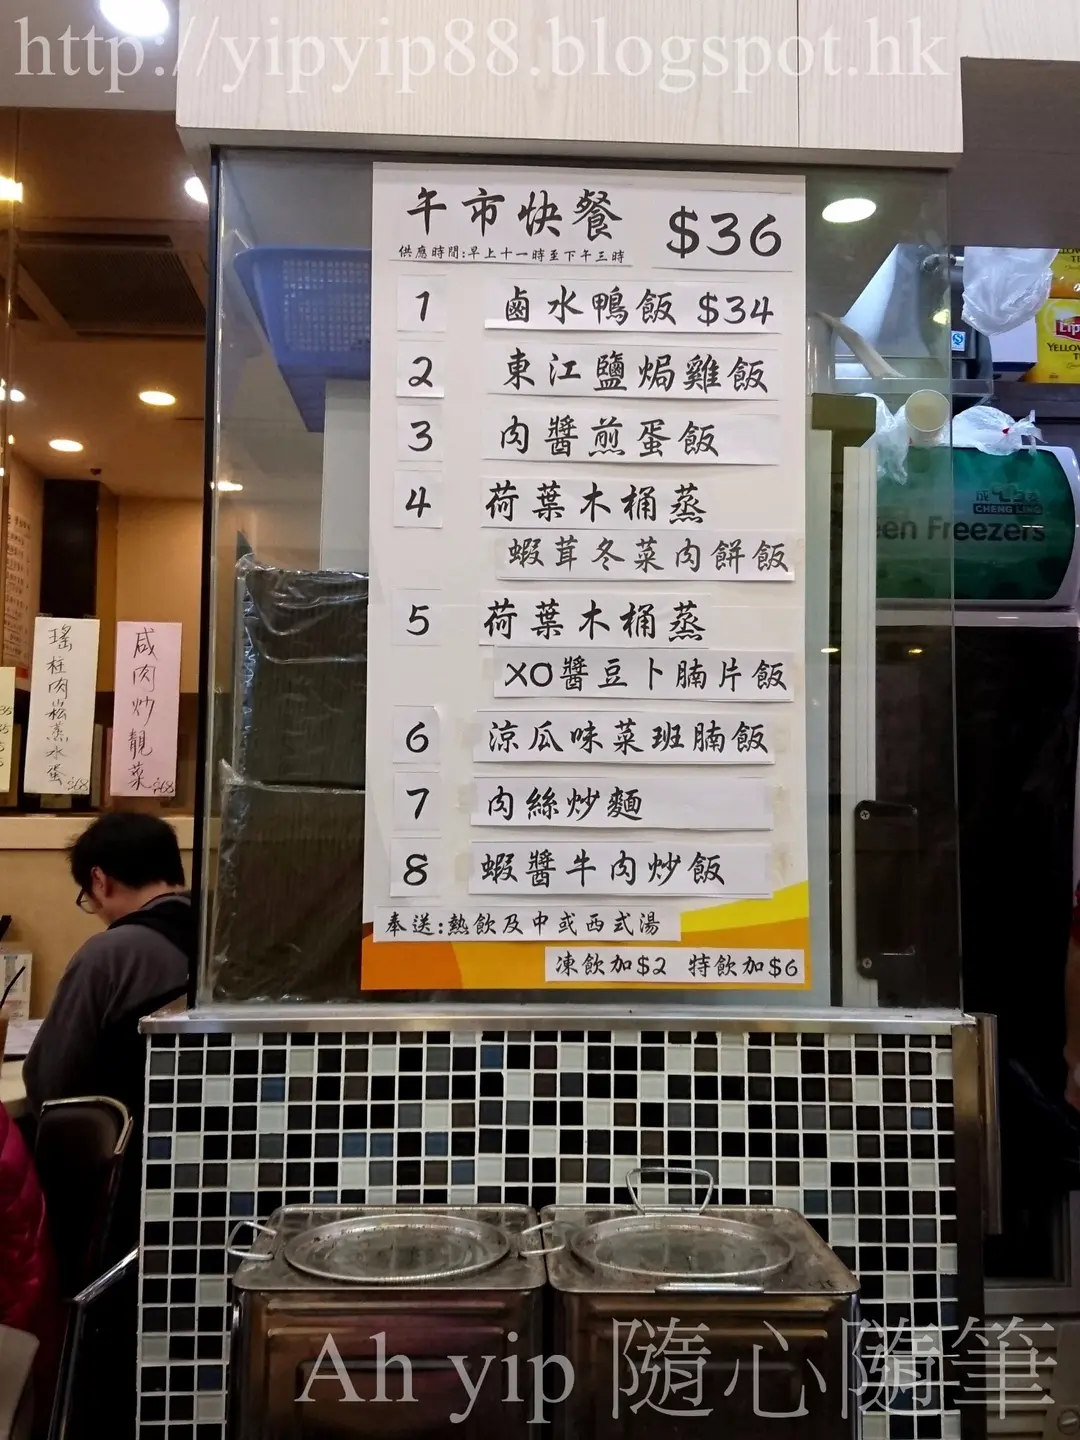 http://yipyip88.blogspot.hk
午市快餐 $36
供應時間:早上十一時至下午三時
1 鹵水鴨飯 $34
2 東江鹽焗雞飯
3 肉醬煎蛋飯
4 荷葉木桶蒸
蝦茸冬菜肉餅飯
5 荷葉木桶蒸
XO醬豆卜腩片飯
6 涼瓜味菜班腩飯
7 肉絲炒麵
8 蝦醬牛肉炒飯
奉送:熱飲及中或西式湯
凍飲加$2 特飲加$6
瑤柱肉崧蒸水蛋 $68
咸肉炒靚菜 $68
YELLOW
CHENG LING
een Freezers
Ah yip 隨心隨筆